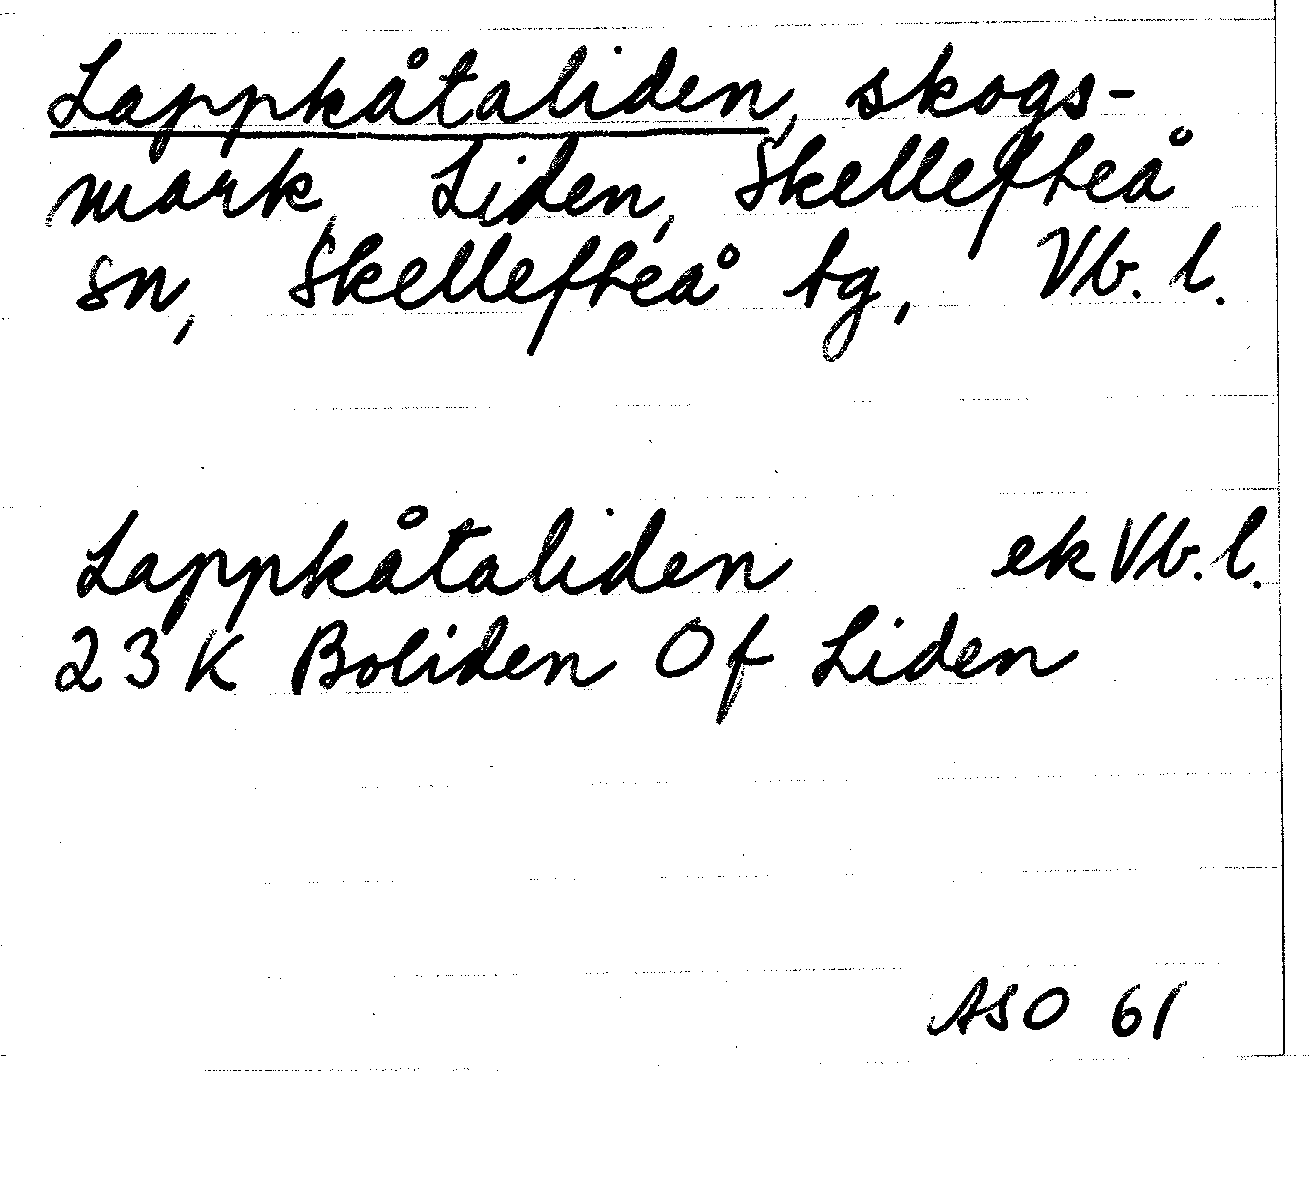 Lappkåtaliden, skogs-
mark, Liden, Skellefteå
sn, Skellefteå tg, Vb. l.
Lappkåtaliden ek Vb. l.
23 K Boliden Of Liden
ASO 61